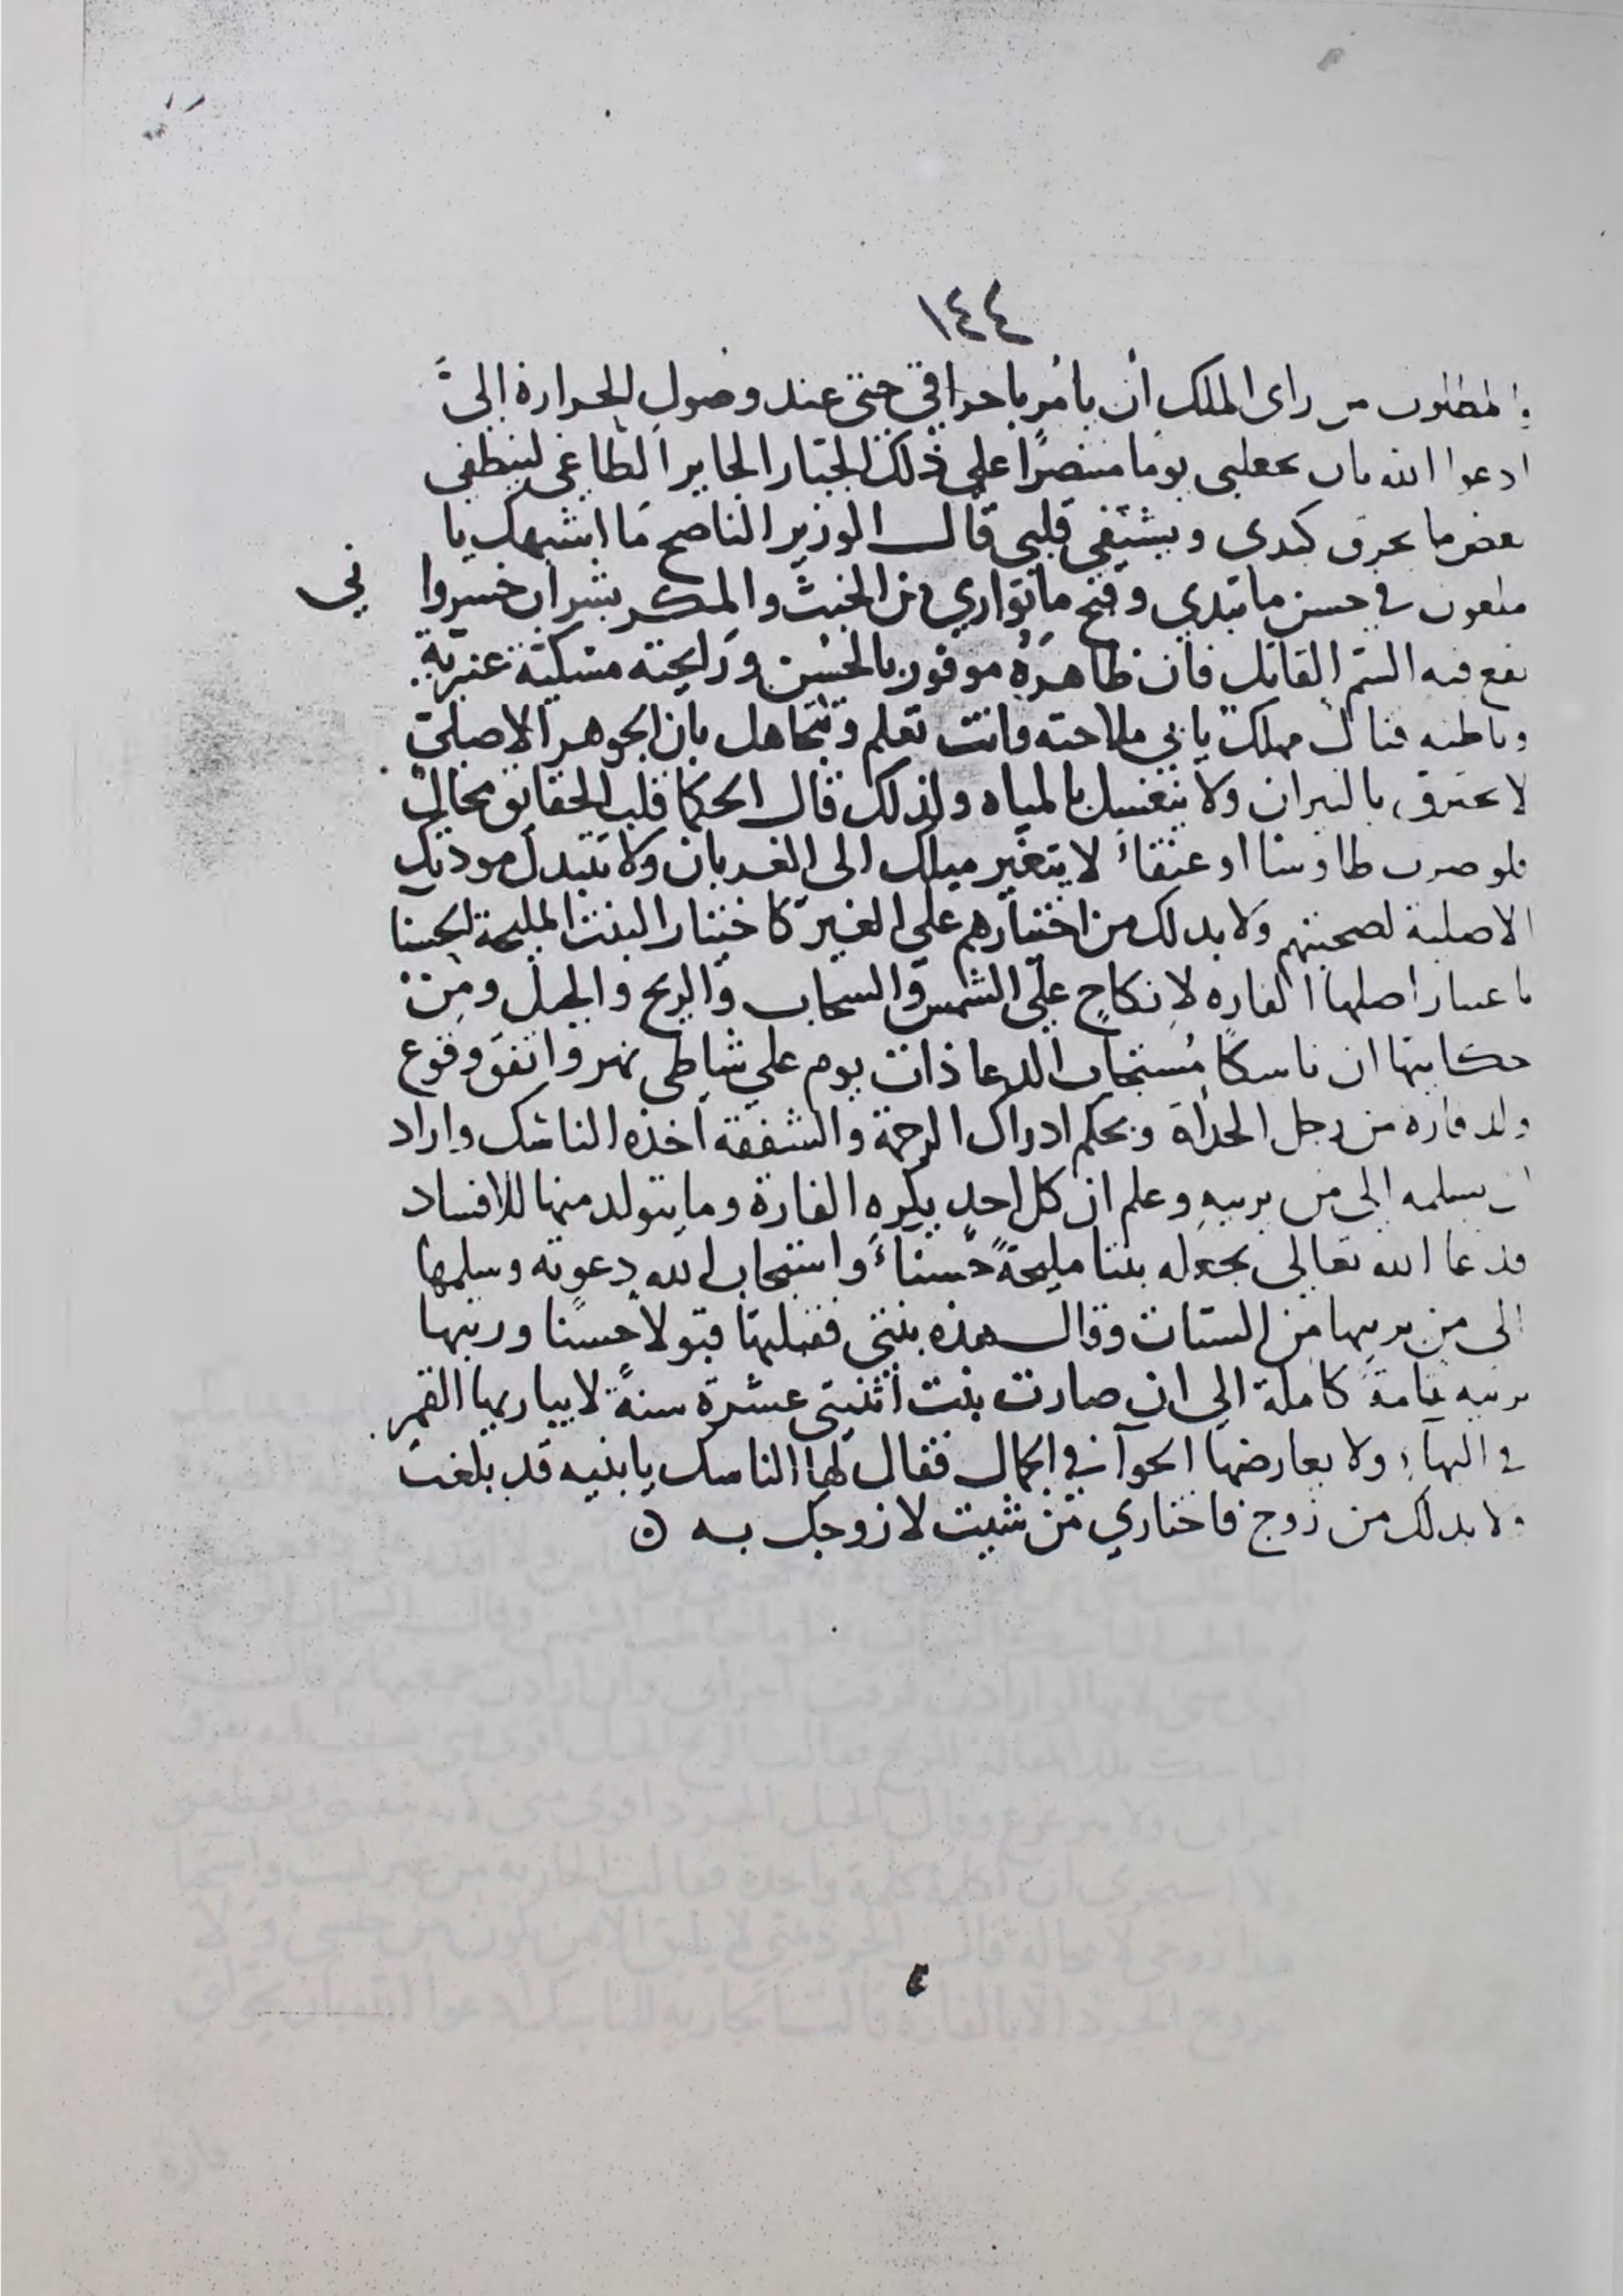 ١٤٤
المطلوب من راى الملك أن يأمُر باحراقي حتى عند وصول الحرارة إليَّ
ادعوا الله بان يجعلني يوما منتصرًا على ذلك الجبّار الجاير الطاغى لينطفى
بعض ما يحرق كبدى ويشتفي قلبى قال الوزير الناصح مَا اشبهك يا
ملعون في حسن ما تبدي وقبح ما تواري من الخبث والمكر بشراب خسروا ني
نقع فيه السّم القاتل فان ظاهرَهُ موفور بالحُسْن ورَايحته مسكيّة عنبريّة
وباطنه قتال مهلك يابي ملاحته وانت تعلم وتتجاهل بان الجوهر الاصلىّ
لا يحترق بالنيران ولا ينغسل بالمياه ولذلك قال الحكما قلب الحقايق محالٌ
فلو صرت طاوسا او عنقاءَ لا يتغيّر ميلك الى الغربان ولا تتبدل مودتك
الاصلية لصحبتهم ولا بد لك من اختيارهم على الغير كاختيار البنت المليحة الحسنا
باعتبار اصلها الفاره لانكاحٍ على الشمس والسحاب والريح والجبل ومِن
حكايتها ان ناسكًا مُستجاب الدعا ذات يوم علي شاطى نهر واتفق وقوع
ولد فارة من رجل الحدأة وبحكم ادراك الرحمة والشفقة اخذه الناسك واراد
ان يسلمه الى من يربيهِ وعلم ان كل احدٍ يكره الفارة وما يتولد منها للافساد
فدعا الله تعالى بجعله بنتا مليحةً حَسناءَ واستجاب الله دعوته وسلمها
الى من يربيها من الستات وقال هذه بنتى فقبلتها قبولاً حسنًا وربتها
تربيه تامةً كاملة الي ان صارت بنت اثنتى عشرة سنةً لا يباريها القمر
في البهاءِ ولا يعارضها الحوآ في الجمال فقال لها الناسك يا بنيه قد بلغت
ولا بد لك من زوج فاختاري مَن شيت لازوجك به ه
٤